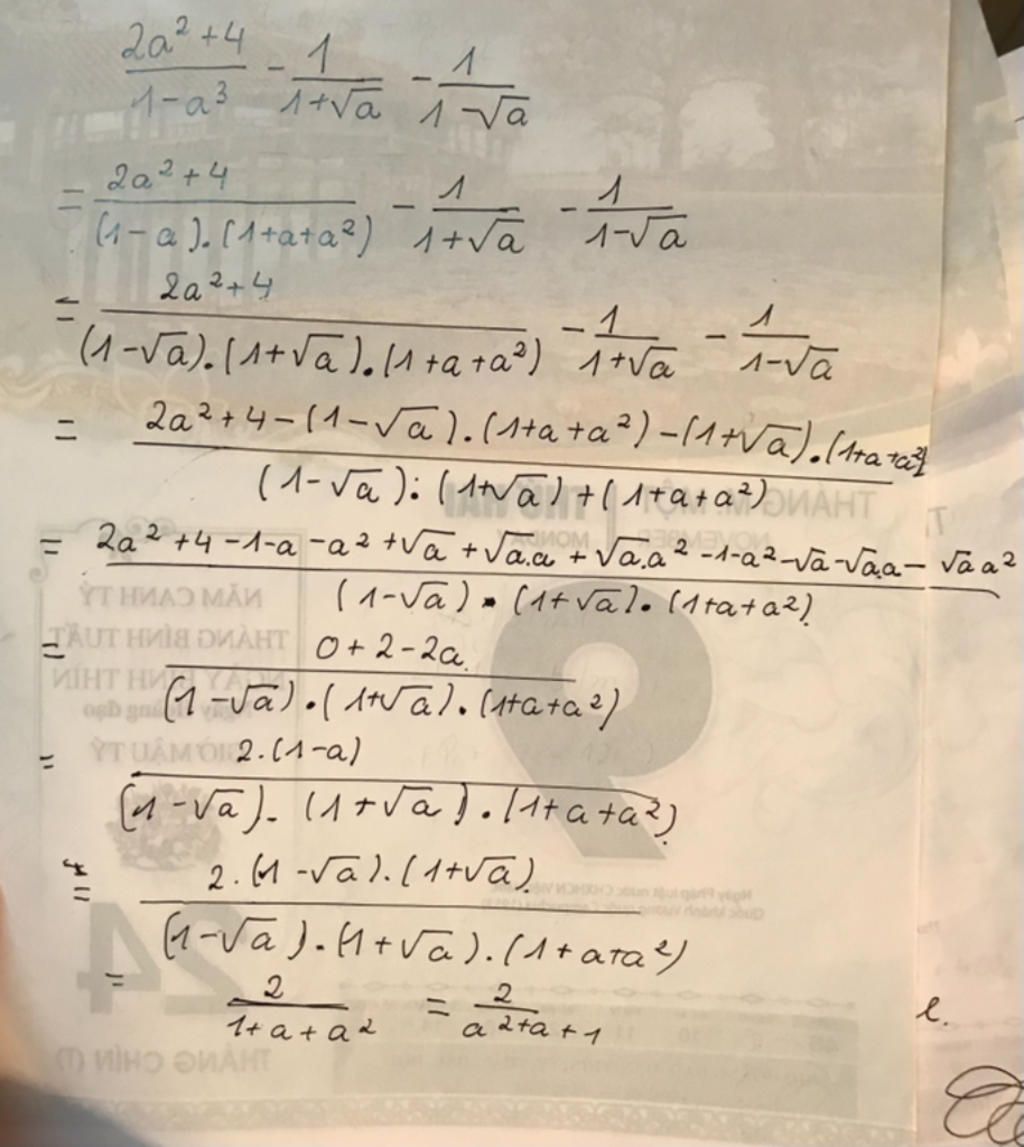 2a² + 4 / 1 - a³ - 1 / 1 + √a - 1 / 1 - √a
= 2a² + 4 / (1 - a).(1 + a + a²) - 1 / 1 + √a - 1 / 1 - √a
= 2a² + 4 / (1 - √a).(1 + √a).(1 + a + a²) - 1 / 1 + √a - 1 / 1 - √a
= 2a² + 4 - (1 - √a).(1 + a + a²) - (1 + √a).(1 + a + a²) / (1 - √a):(1 + √a) + (1 + a + a²)
= 2a² + 4 - 1 - a - a² + √a + √a.a + √a.a² - 1 - a² - √a - √a.a - √a a² / (1 - √a).(1 + √a).(1 + a + a²)
= 0 + 2 - 2a / (1 - √a).(1 + √a).(1 + a + a²)
= 2.(1 - a) / (1 - √a).(1 + √a).(1 + a + a²)
= 2.(1 - √a).(1 + √a) / (1 - √a).(1 + √a).(1 + a + a²)
= 2 / 1 + a + a² = 2 / a² + a + 1
l.
THÁNG M. MỘT
THỨ HAI
NOVEMBER
MONDAY
9
NĂM CANH TÝ
THÁNG BÍNH TUẤT
NGÀY BÍNH THÌN
Ngày Hoàng đạo
GIỜ MẬU TÝ
24
THÁNG CHÍN (T)